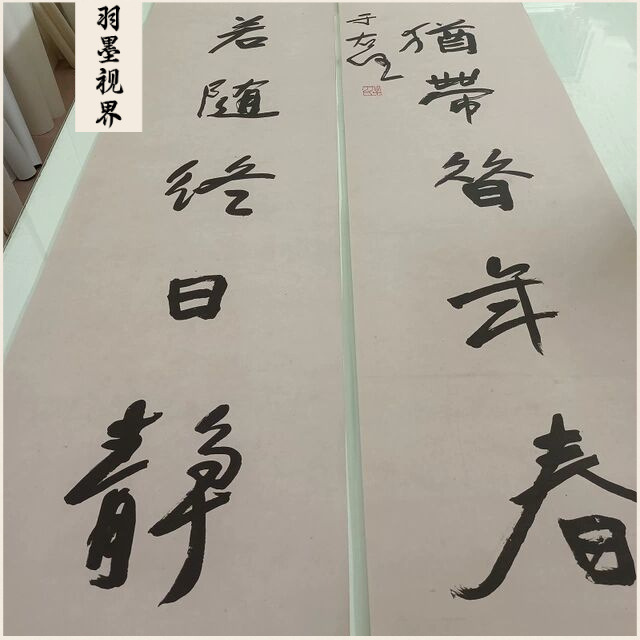 羽墨视界
若隨終日靜
猶帶昔年春
于右任